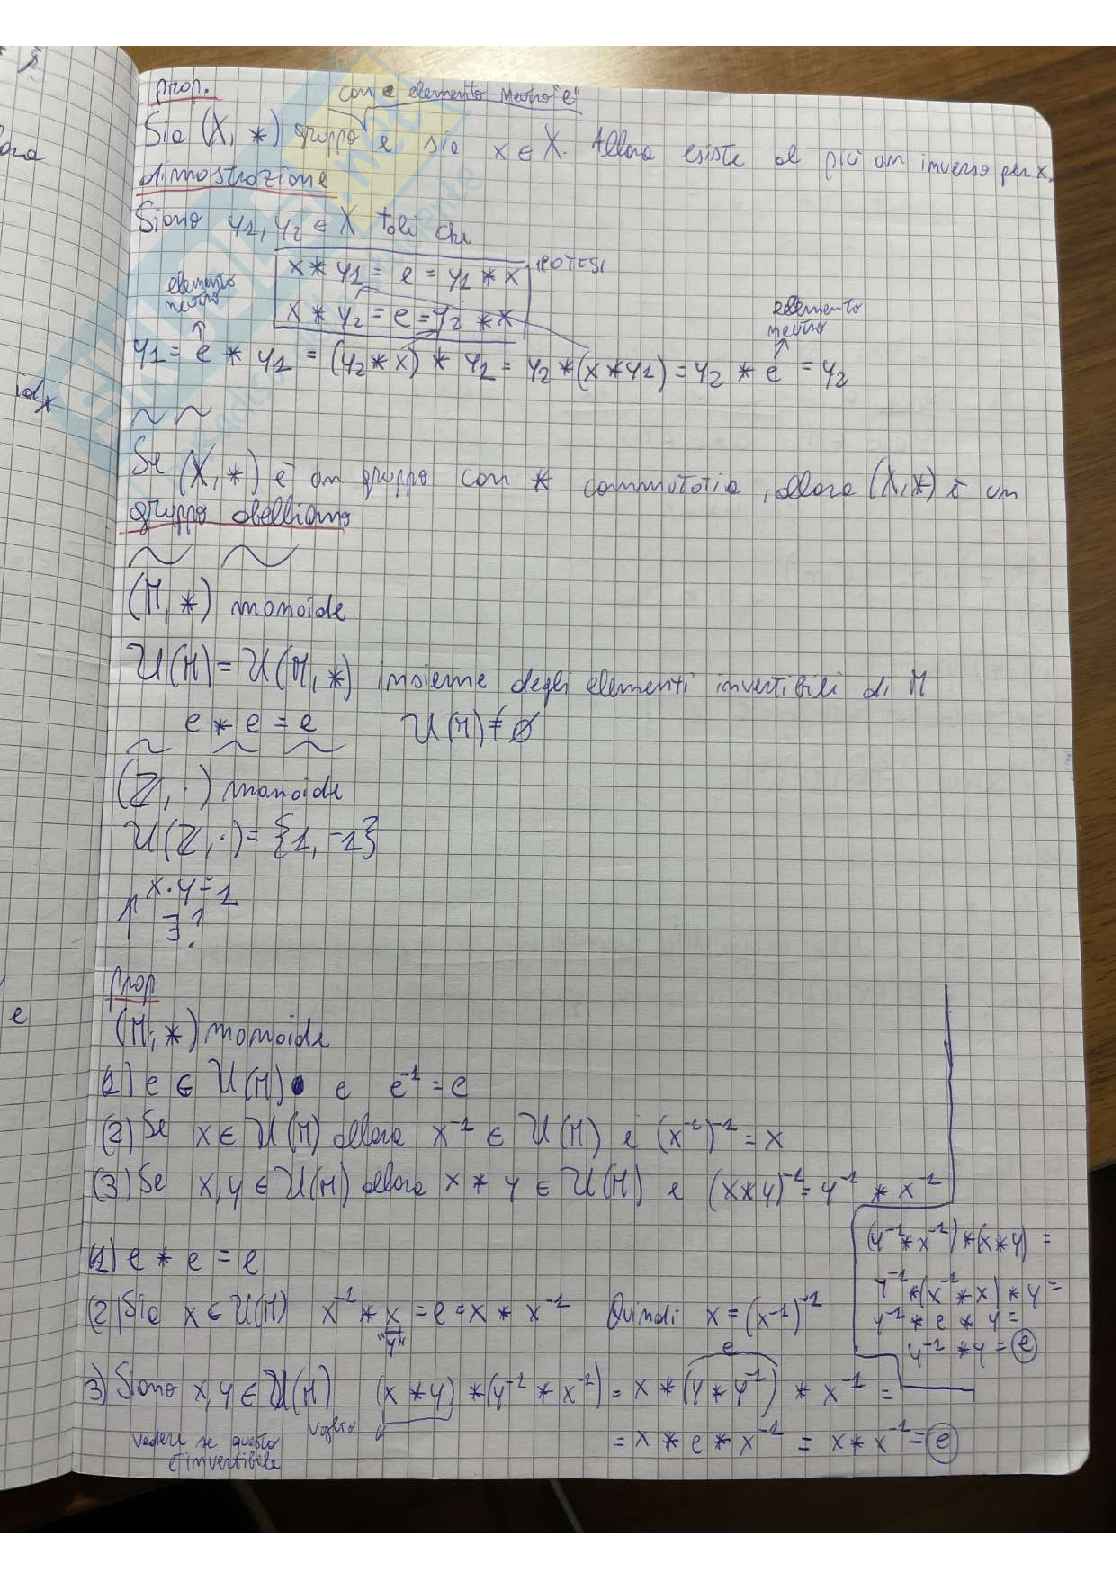 prop.
con e elemento neutro e
Sia (X, *) gruppo e sia x ∈ X. Allora esiste al più un inverso per x.
dimostrazione
Siano y1, y2 ∈ X tali che
x * y1 = e = y1 * x
IPOTESI
x * y2 = e = y2 * x
elemento neutro
elemento neutro
y1 = e * y1 = (y2 * x) * y1 = y2 * (x * y1) = y2 * e = y2
Se (X, *) è un gruppo con * commutatia, allora (X, *) è un
gruppo abelliano
(M, *) monoide
U(M) = U(M, *) insieme degli elementi invertibili di M
e * e = e U(M) ≠ ∅
(Z, ·) monoide
U(Z, ·) = {1, -1}
↑ x · y = 1
∃?
prop
(M, *) monoide
(1) e ∈ U(M) e e⁻¹ = e
(2) Se x ∈ U(M) allora x⁻¹ ∈ U(M) e (x⁻¹)⁻¹ = x
(3) Se x, y ∈ U(M) allora x * y ∈ U(M) e (x * y)⁻¹ = y⁻¹ * x⁻¹
(1) e * e = e
(2) Sia x ∈ U(M) x⁻¹ * x = e = x * x⁻¹ Quindi x = (x⁻¹)⁻¹
"y"
e
3) Siano x, y ∈ U(M) (x * y) * (y⁻¹ * x⁻¹) = x * (y * y⁻¹) * x⁻¹ =
voglio
vedere se questo
è invertibile
= x * e * x⁻¹ = x * x⁻¹ = e
(y⁻¹ * x⁻¹) * (x * y) =
y⁻¹ * (x⁻¹ * x) * y =
y⁻¹ * e * y =
y⁻¹ * y = e
id x
e